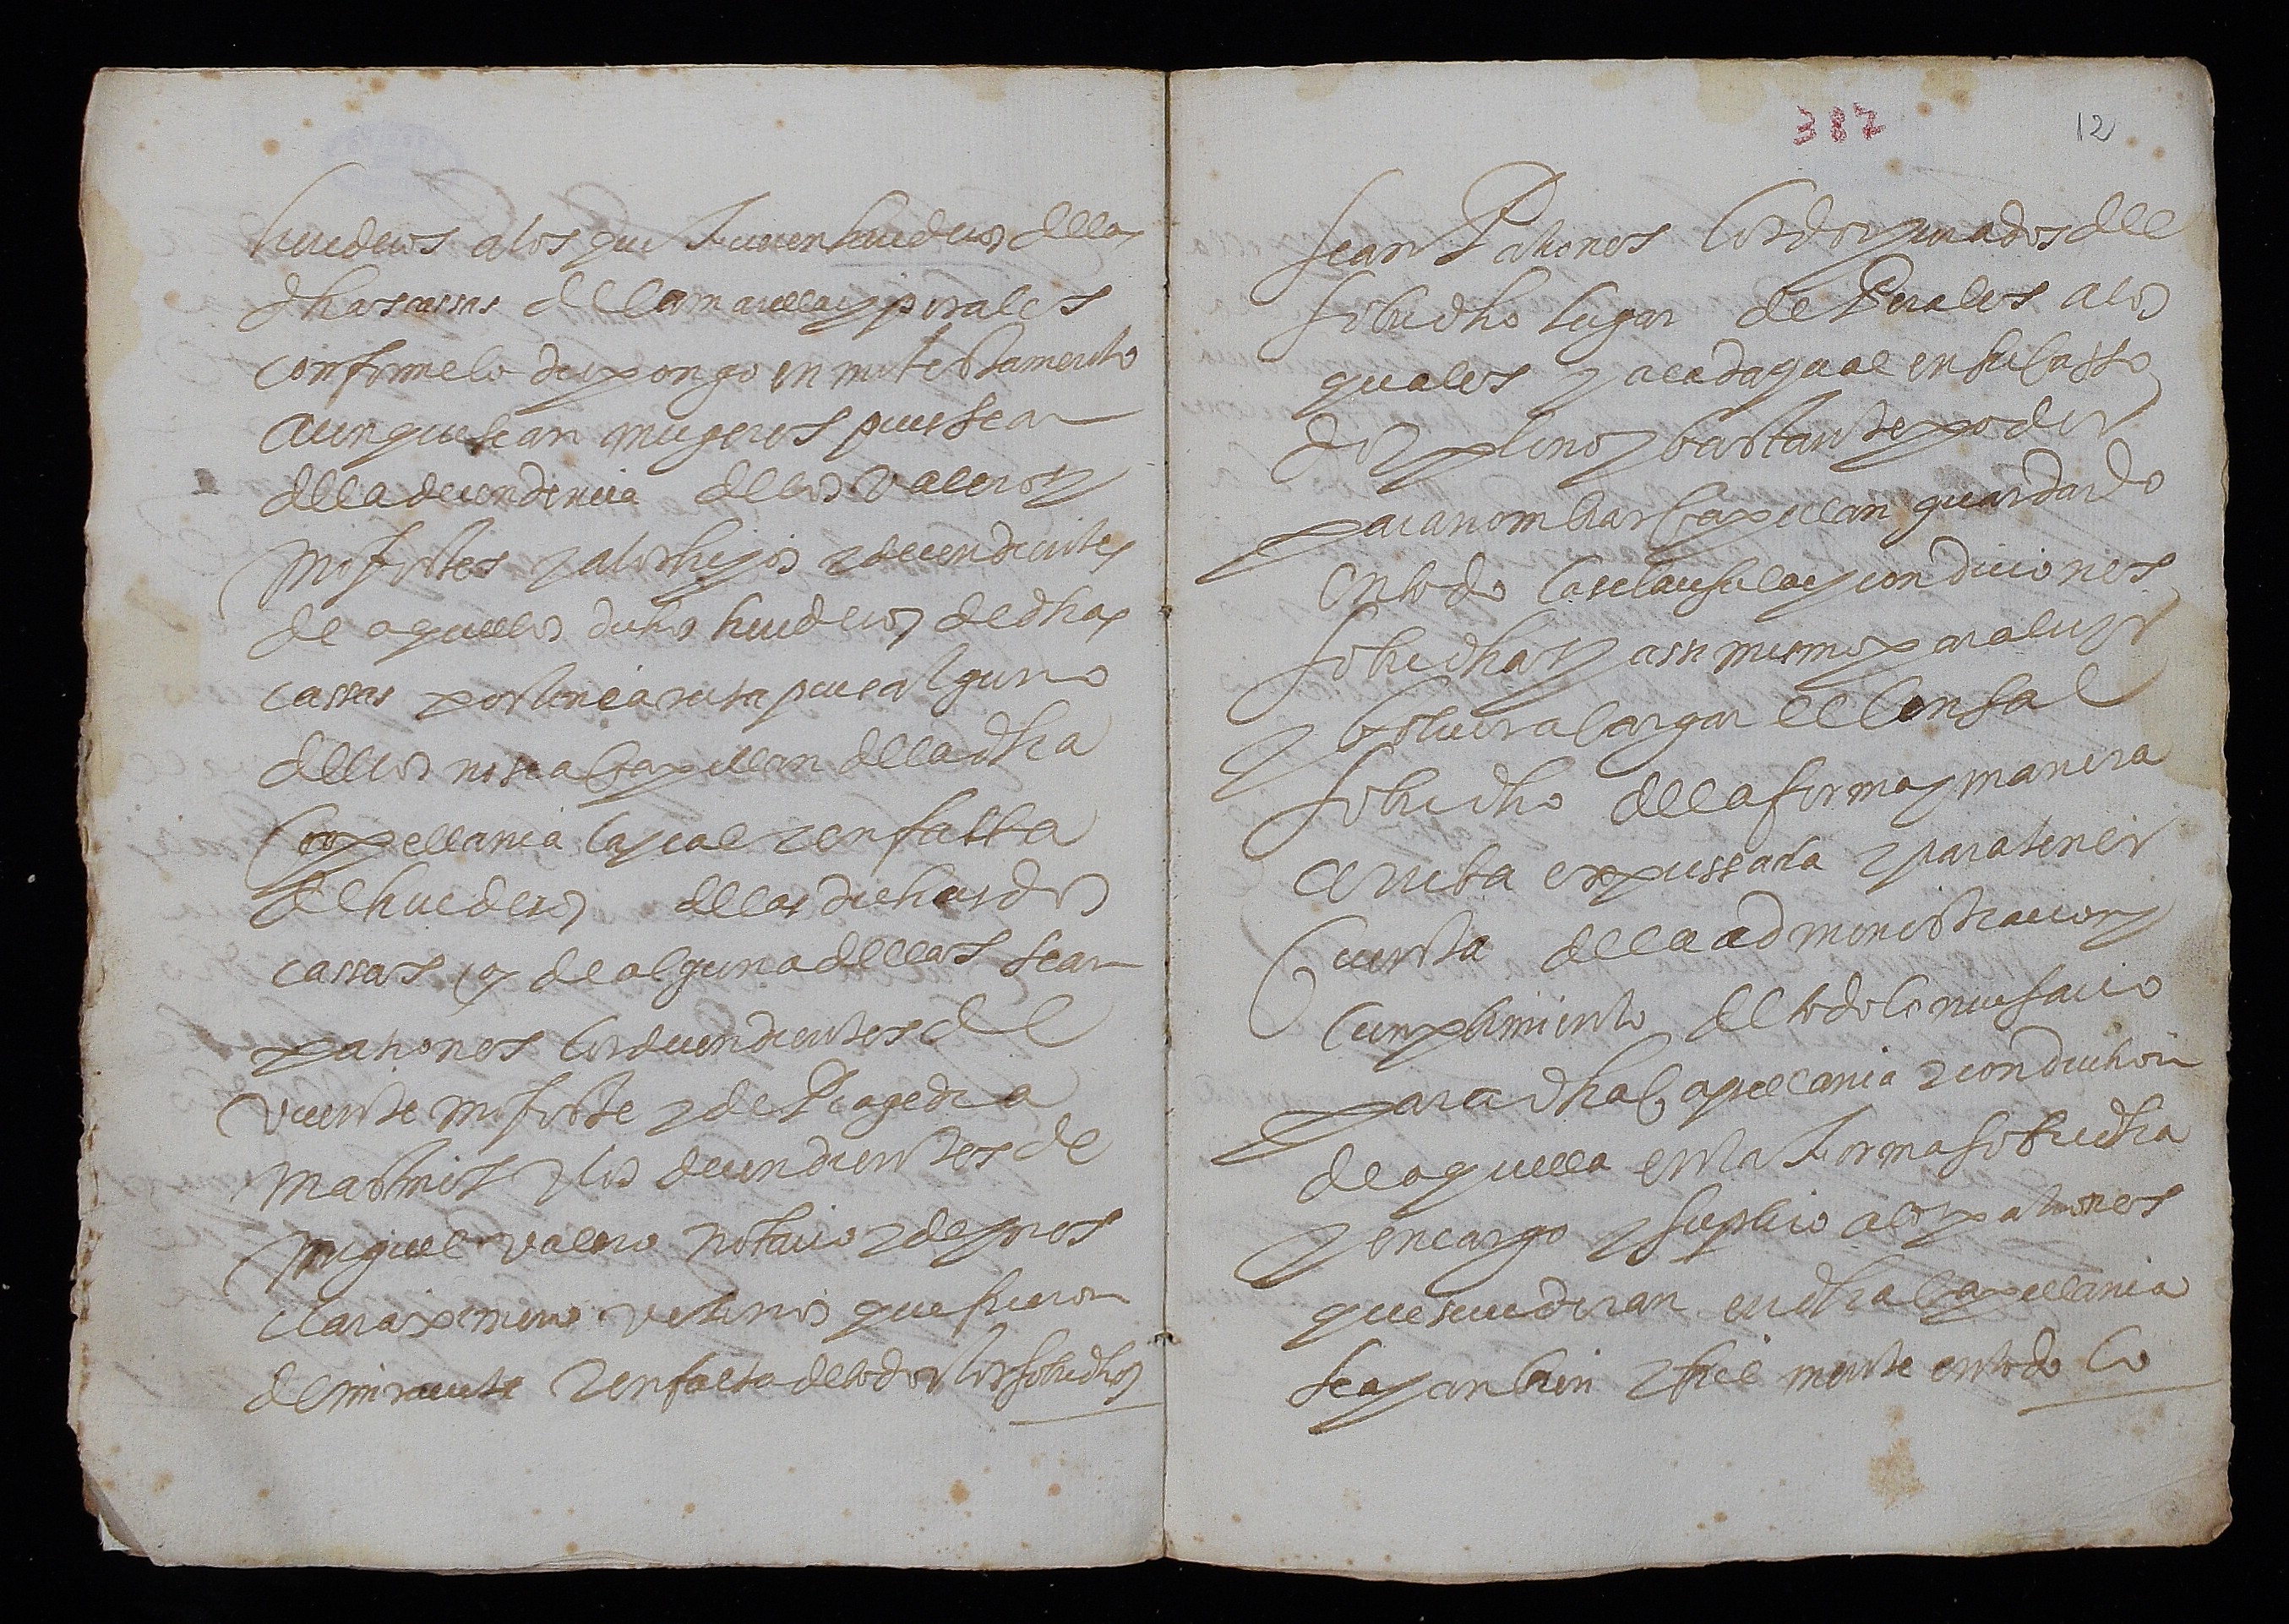 herederos a los que fueren herederos de las
dhas cassas de la masia y perales
conforme lo dispongo en mi testamento
aunque sean mugeres pues sean
de la decendencia de los Valeros y
Monfortes y a los hijos y decendientes
de aquellos dichos herederos de dhas
cassas por linea recta pues alguno
dellos no sea Capellan de la dha
Capellania la qual y en falta
de herederos de las dichas dos
cassas o de alguna dellas sean
patrones los decendientes de
vicente Monforte y de
Martines y los decendientes de
Miguel Valero notario y de
clara ximeno vezinos que fueron
de mirauete y en falta de todos los sobredhos
387 12
sean Patrones los dos jurados del
sobredho lugar de Perales a los
quales y a cada qual en su casso
doy pleno y bastante poder
para nombrar Capellan guardando
en todo las clausulas y condiciones
sobredhas y assi mesmo para luyr
y bolver a cargar el Censal
sobredho de la forma y manera
arriba expressada y para tener
Cuenta de la administracion y
cumplimiento de todo lo necesario
para dha Capellania y conducion
de aquella en la forma sobredha
y encargo y suplico a los patrones
que sucediran en dha Capellania
se ayan bien y fiel mente en todo lo